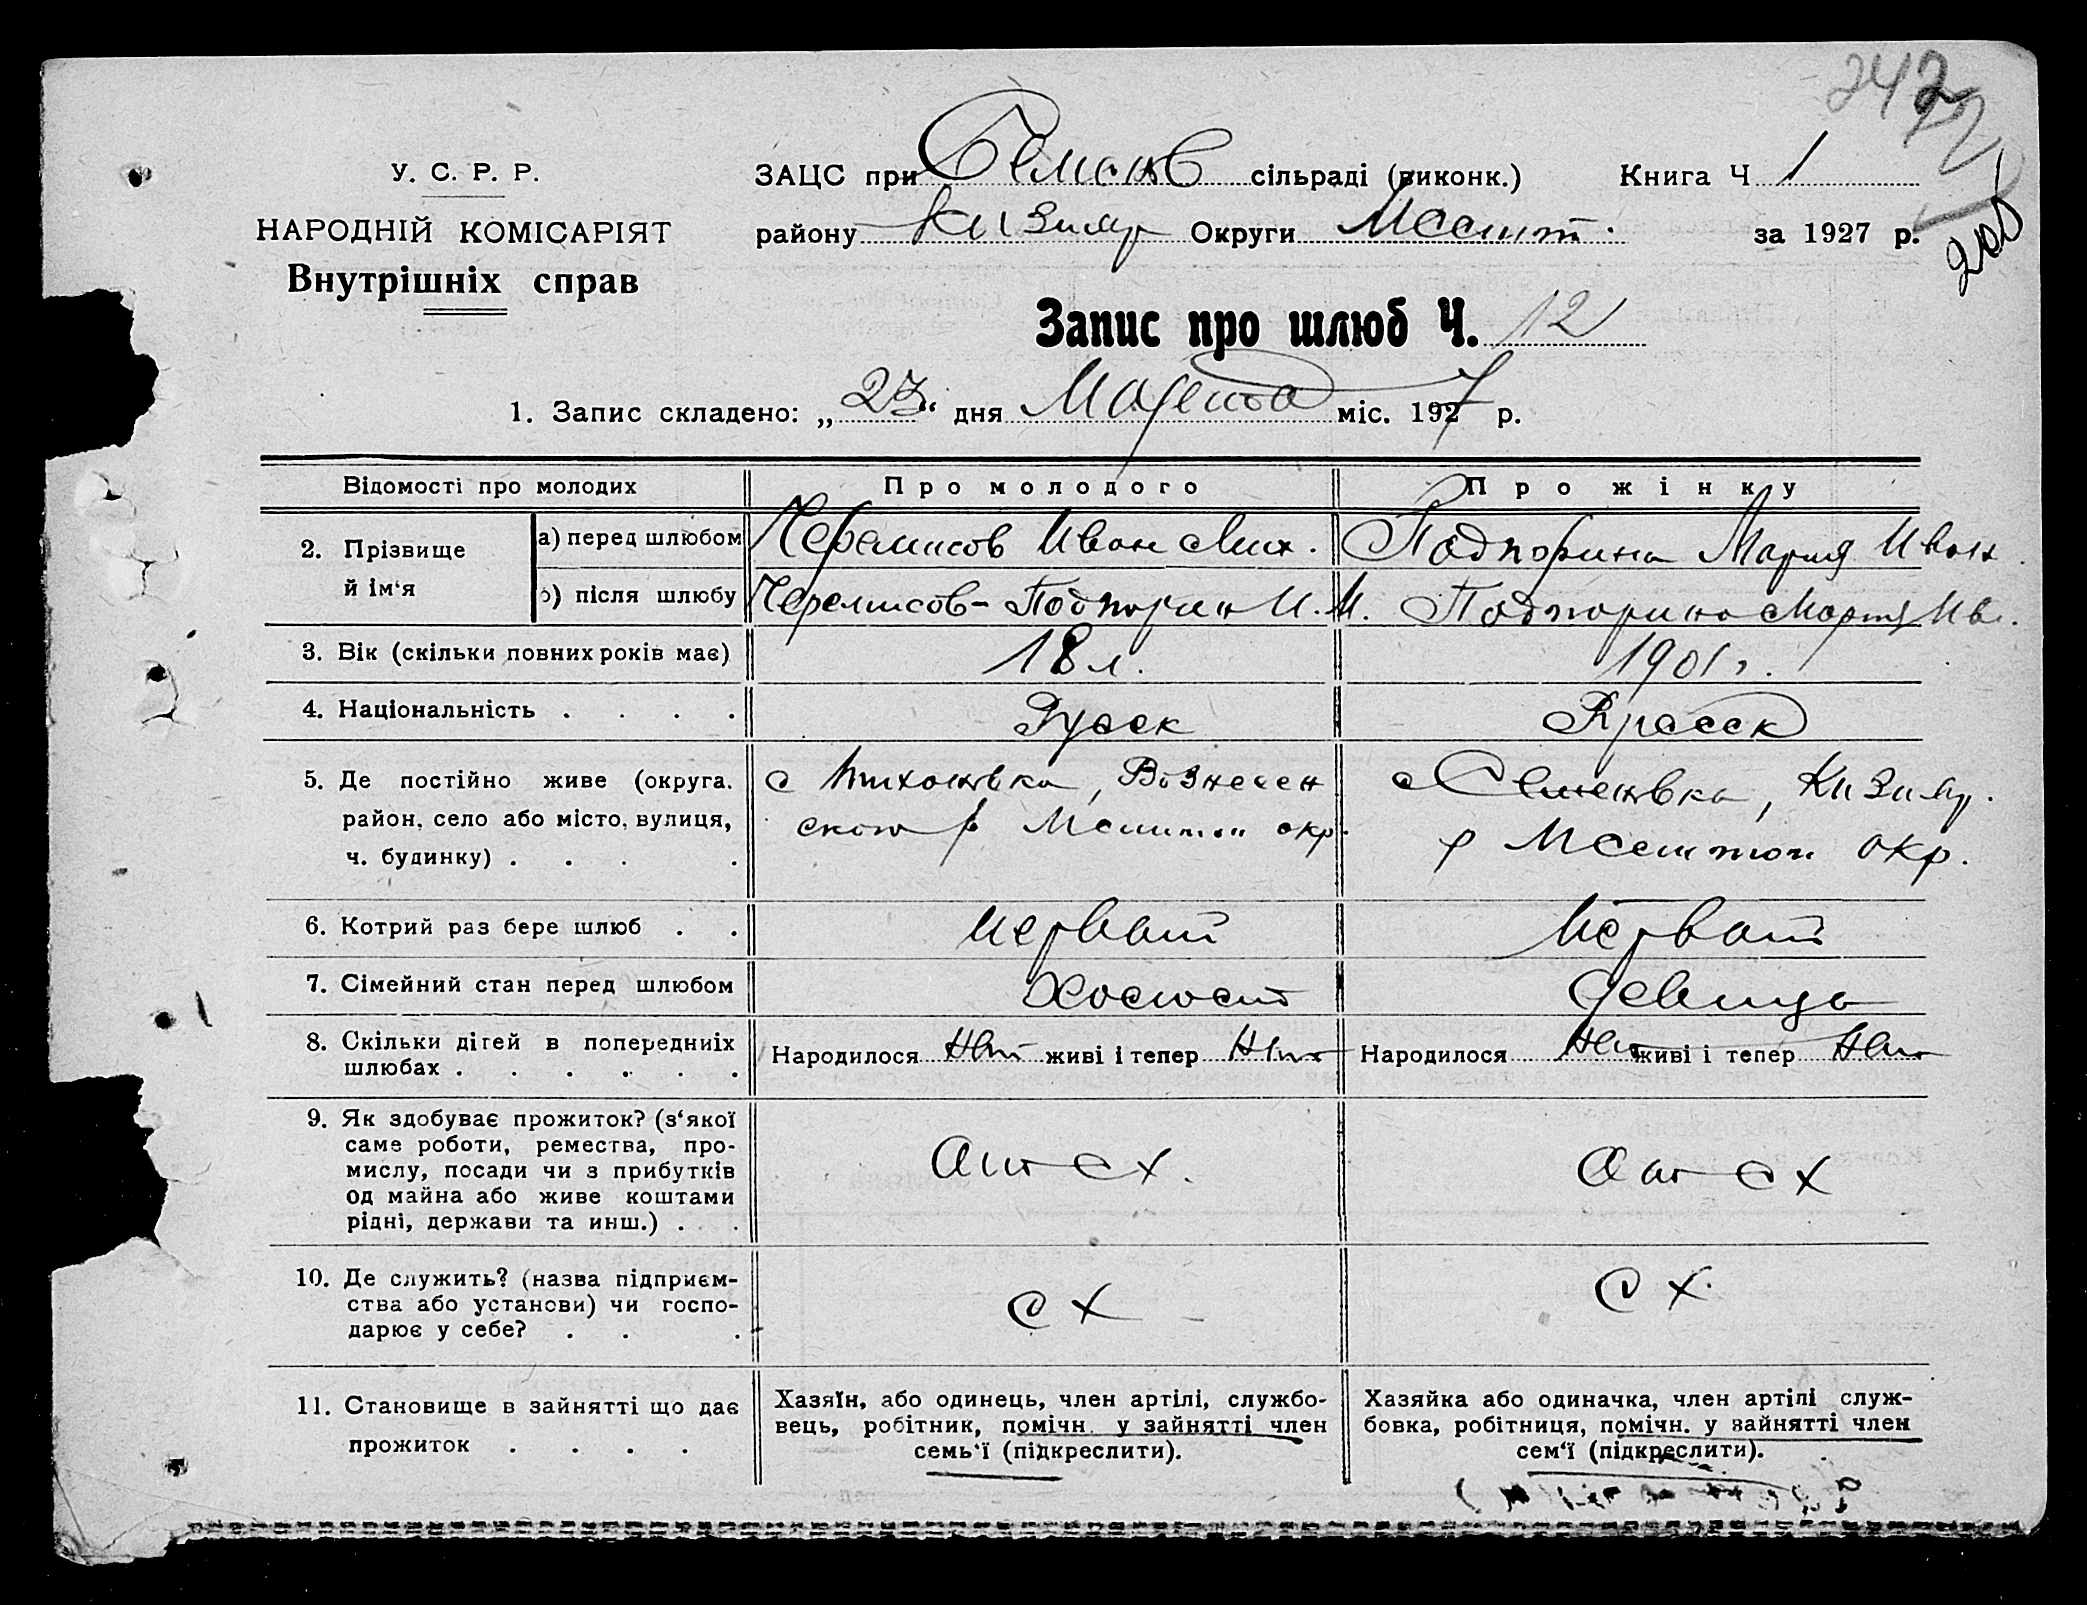 242
У. С. Р. Р.
НАРОДНІЙ КОМІСАРІЯТ
Внутрішніх справ
ЗАЦС при Семенов сільраді (виконк.) Книга Ч 1
району Кизияр Округи Мелит. за 1927 р.
Запис про шлюб Ч. 12
1. Запис складено: „23“ дня Марта міс. 1927 р.
Відомості про молодих Про молодого Про жінку
2. Прізвище й ім‘я
а) перед шлюбом Черемисов Иван Мих. Подпорина Мария Иван
б) після шлюбу Черемисов-Подпорин И. М. Подпорина Мария Ив.
3. Вік (скільки повних років має) 18 л. 1901 г.
4. Національність . . . . Русск Русск
5. Де постійно живе (округа. район, село або місто, вулиця, ч. будинку) . . . .
с Тихоновка, Вознесен
ского р Мелитоп окр.
с Семеновка, Кизияр.
р Мелитоп окр.
6. Котрий раз бере шлюб . . первый первый
7. Сімейний стан перед шлюбом Холост девица
8. Скільки дітей в попередніх шлюбах . . . . . .
Народилося нет живі і тепер нет Народилося нет живі і тепер нет
9. Як здобуває прожиток? (з‘якої
саме роботи, ремества, про-
мислу, посади чи з прибутків
од майна або живе коштами
рідні, держави та инш.) . .
с х. с х
10. Де служить? (назва підприєм-
ства або установи) чи госпо-
дарює у себе? . . .
с х с х.
11. Становище в зайнятті що дає
прожиток . . . .
Хазяїн, або одинець, член артілі, службо-
вець, робітник, помічн. у зайнятті член
семь‘ї (підкреслити).
Хазяйка або одиначка, член артілі служ-
бовка, робітниця, помічн. у зайнятті член
сем‘ї (підкреслити).